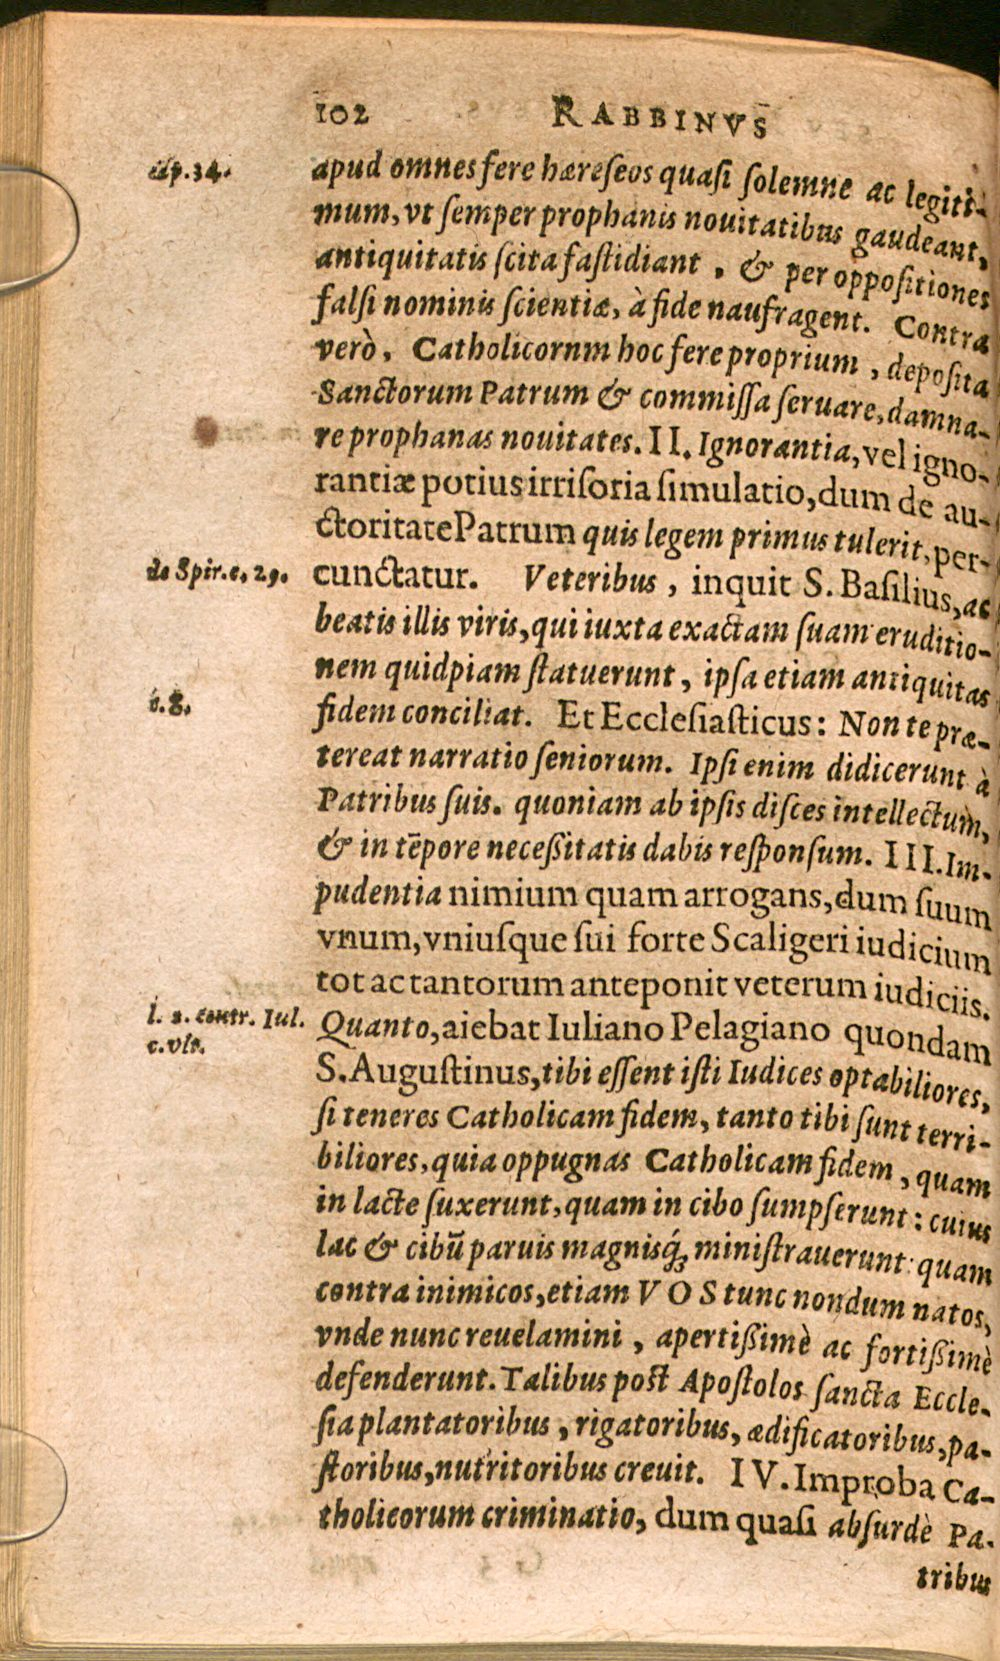 102 RABBINVS
cap.34. apud omnes fere hæreſeos quaſi ſolemne ac legiti-
mum, vt ſemper prophanis nouitatibus gaudeant,
antiquitatis ſcita faſtidiant, & per oppoſitiones
falſi nominis ſcientiæ, à fide naufragent. Contra
verò, Catholicornm hoc fere proprium, depoſita
Sanctorum Patrum & commiſſa ſeruare, damna-
re prophanas nouitates. II. Ignorantia, vel igno-
rantiæ potius irriſoria ſimulatio, dum de au-
ctoritate Patrum quis legem primus tulerit, per-
de Spir.c. 29. cunctatur. Veteribus, inquit S. Baſilius, ac
beatis illis viris, qui iuxta exactam ſuam eruditio-
nem quidpiam ſtatuerunt, ipſa etiam antiquitas
c.8. fidem conciliat. Et Eccleſiaſticus: Non te præ-
tereat narratio ſeniorum. Ipſi enim didicerunt à
Patribus ſuis. quoniam ab ipſis diſces intellectum,
& in tēpore neceßitatis dabis reſponſum. III. Im-
pudentia nimium quam arrogans, dum ſuum
vnum, vniuſque ſui forte Scaligeri iudicium
tot ac tantorum anteponit veterum iudiciis.
l. 2. contr. Iul. Quanto, aiebat Iuliano Pelagiano quondam
c.vlt. S. Auguſtinus, tibi eſſent iſti Iudices optabiliores,
ſi teneres Catholicam fidem, tanto tibi ſunt terri-
biliores, quia oppugnas Catholicam fidem, quam
in lacte ſuxerunt, quam in cibo ſumpſerunt: cuius
lac & cibū paruis magnisq́; miniſtrauerunt: quam
contra inimicos, etiam VOS tunc nondum natos,
vnde nunc reuelamini, apertißimè ac fortißimè
defenderunt. Talibus poſt Apoſtolos ſancta Eccle-
ſia plantatoribus, rigatoribus, ædificatoribus, pa-
ſtoribus, nutritoribus creuit. IV. Improba Ca-
tholicorum criminatio, dum quaſi abſurdè Pa-
tribus